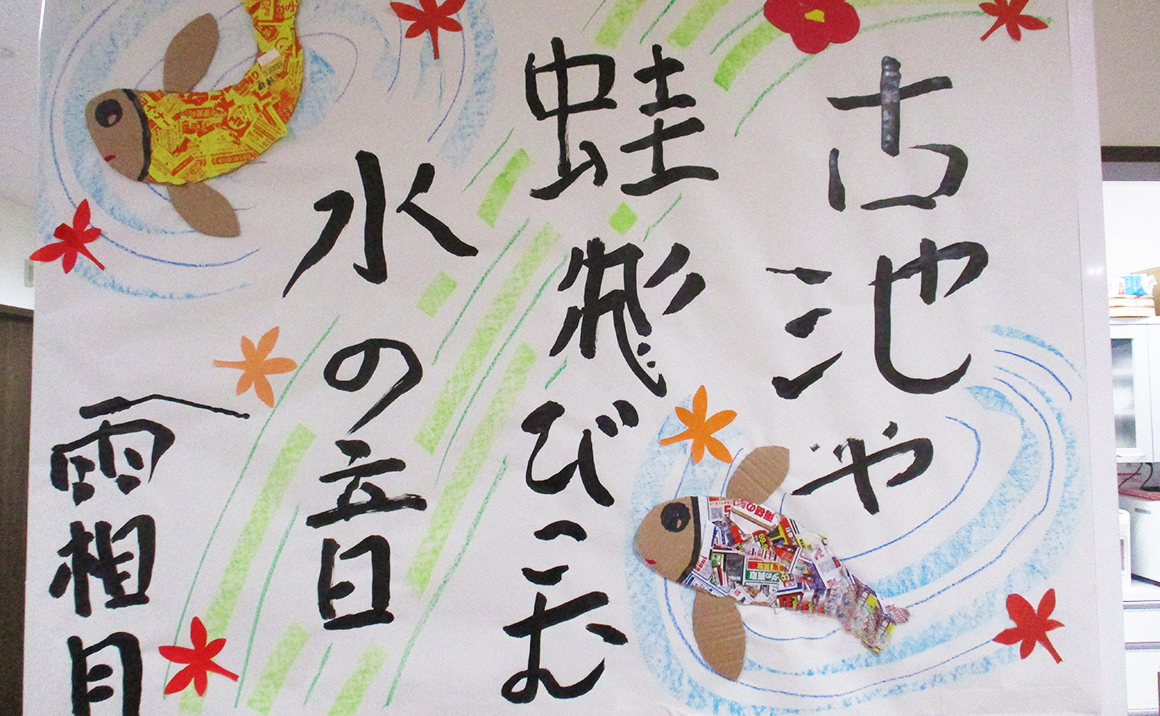 古池や
蛙飛びこむ
水の音
（霜月